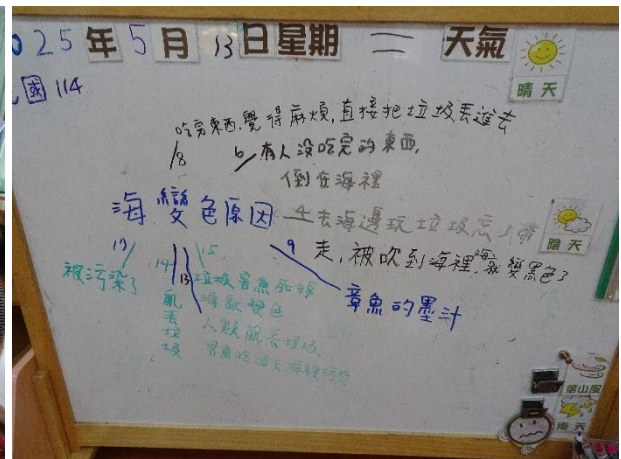 025年5月13日星期二 天氣
國114
晴天
吃完東西,覺得麻煩,直接把垃圾丟進去
18
6 有人沒吃完的東西,
倒在海裡
海變色原因
4 去海邊玩垃圾忘了帶
走,被吹到海裡,海就變黑色了
陰天
19
被污染了
14
亂丟垃圾
13
15
垃圾害魚死掉
海就變色
人類亂丟垃圾
9
章魚的墨汁
落山風
雨天